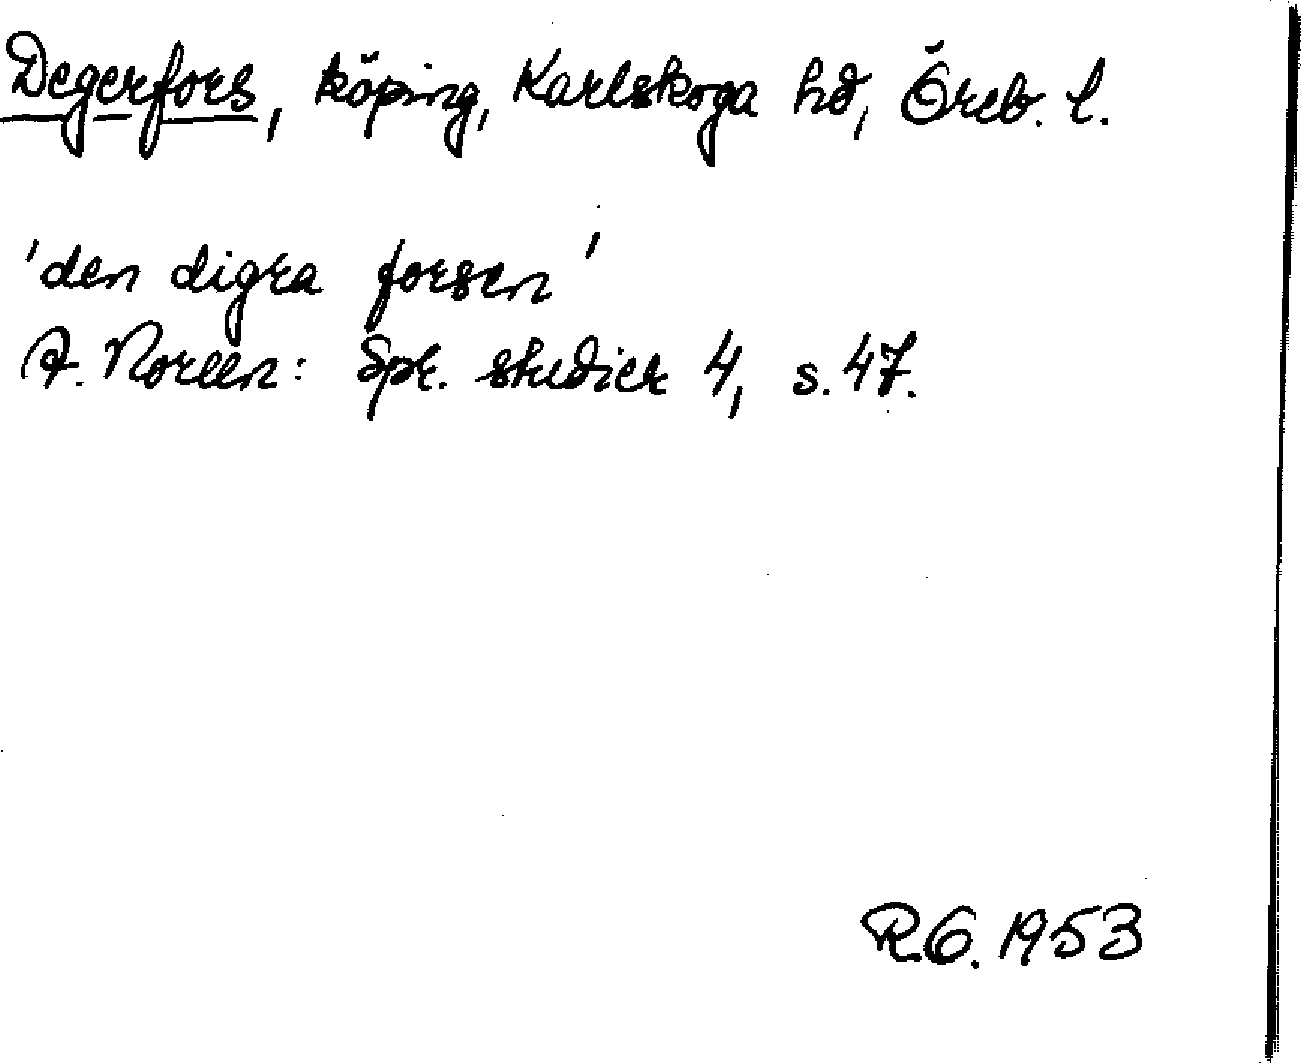 Degerfors, köping, Karlskoga hd, Öreb. l.
'den digra forsen'
A. Noreen: Spr. studier 4, s. 47.
R.G. 1953